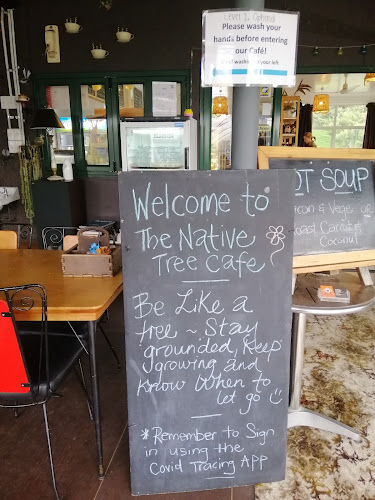 Level 1 Cafe
Please wash your
hands before entering
our Café!
Hand washing on your left
Welcome to
The Native
Tree Cafe
Be Like a
tree ~ Stay
grounded, Keep
growing and
Know When to
let go
*Remember to Sign
in using the
Covid Tracing App
OT SOUP
& Veges
Coconut